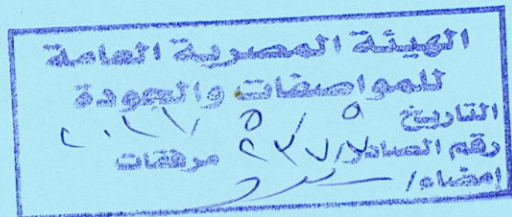 الهيئة المصرية العامة
للمواصفات والجودة
التاريخ ٥ / ٥ /
رقم الصادر / ٢٣٧٧ مرفقات
إمضاء /